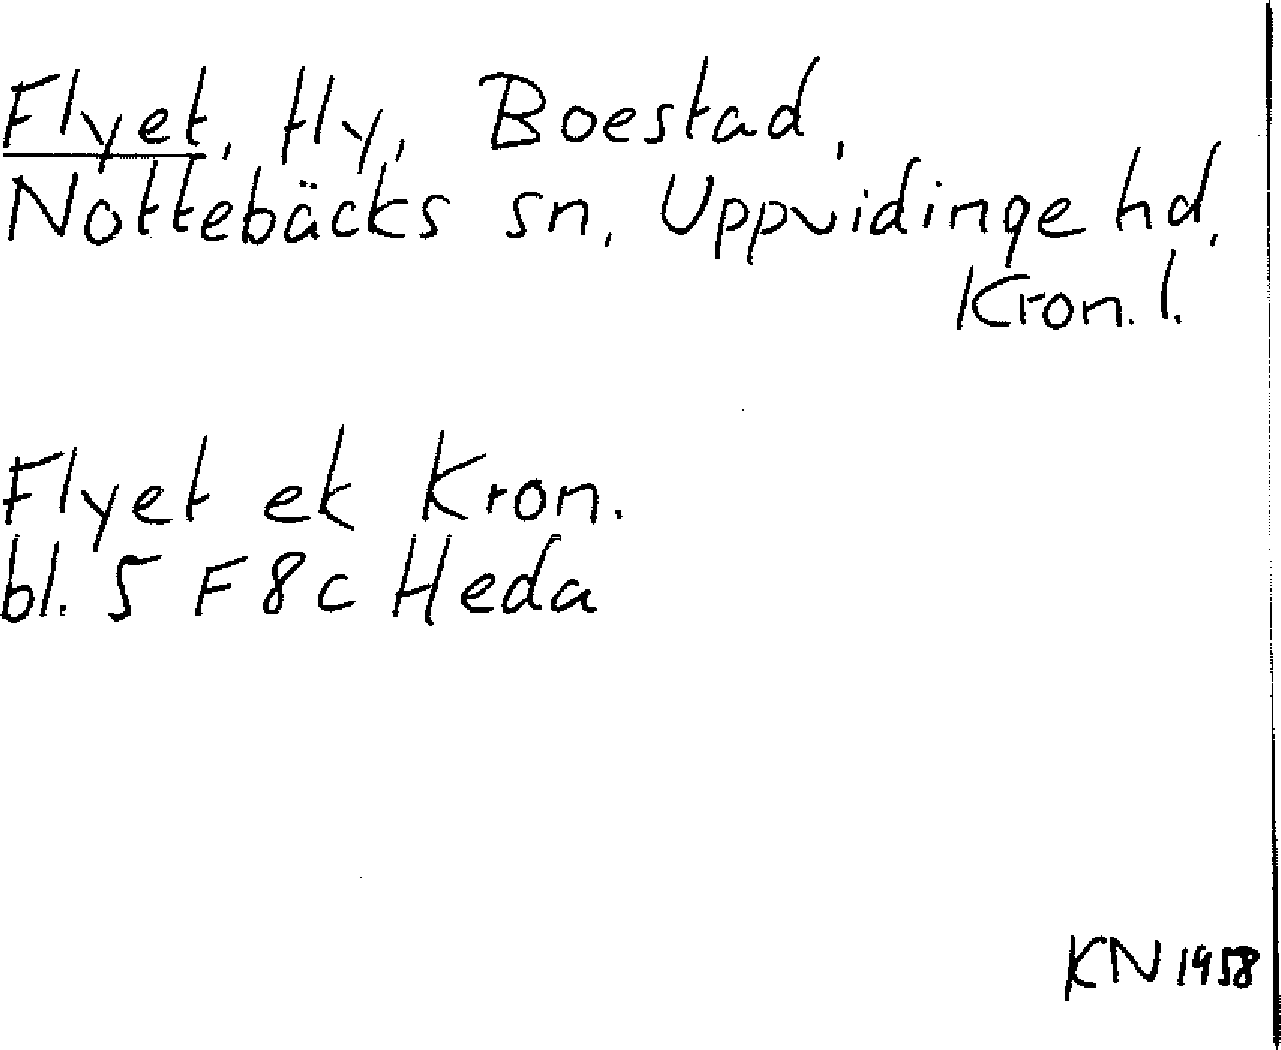 Flyet, fly, Boestad,
Nottebäcks sn, Uppvidinge hd,
Kron. l.
Flyet ek Kron.
bl. 5 F 8c Heda
KN 1958